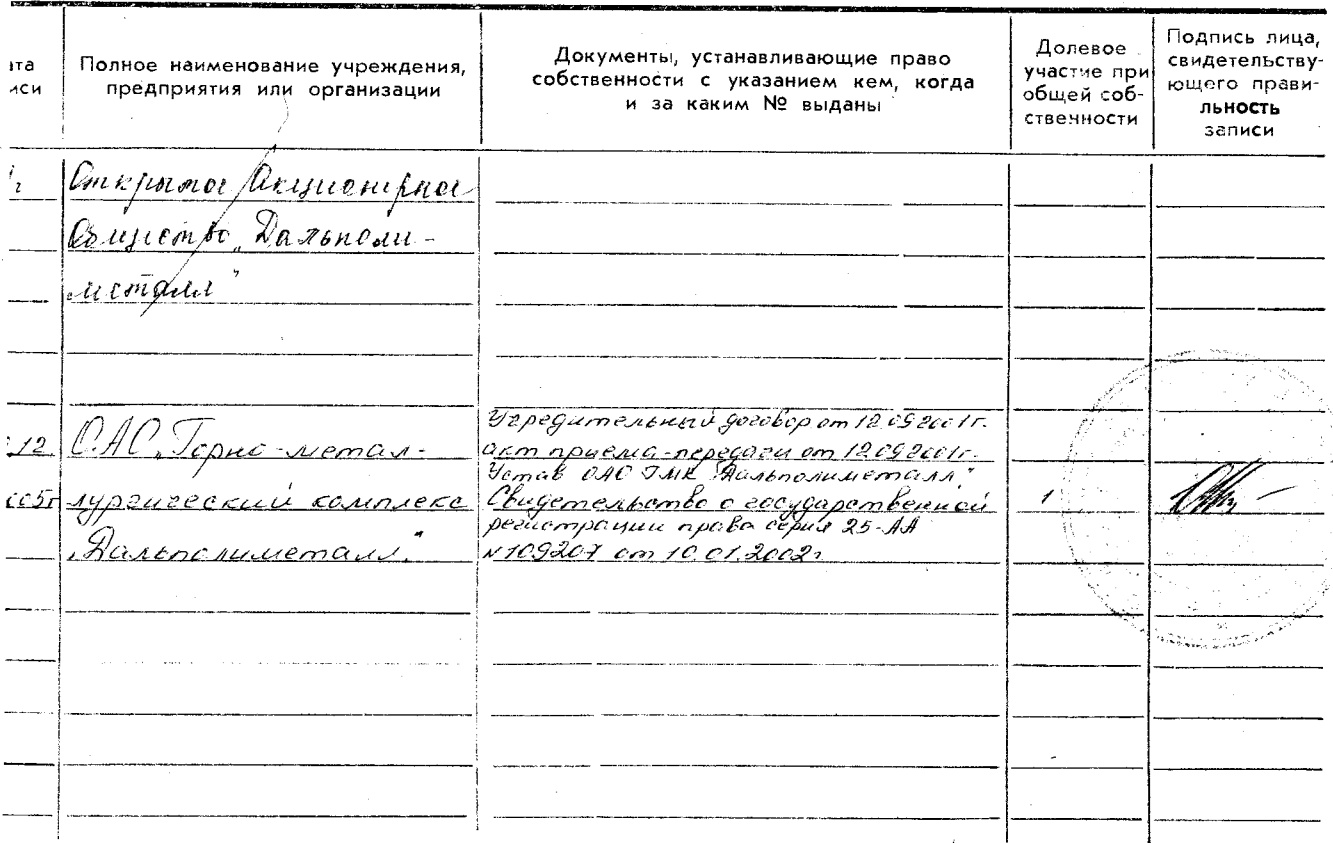 ата
иси
Полное наименование учреждения,
предприятия или организации
Документы, устанавливающие право
собственности с указанием кем, когда
и за каким № выданы
Долевое
участие при
общей соб-
ственности
Подпись лица,
свидетельству-
ющего прави-
льность
записи
Открытое Акционерное
Общество „Дальполи-
металл"
12
005г
ОАО „Горно-метал-
лургический комплекс
„Дальполиметалл"
Учредительный договор от 12.09.2001г.
акт приема-передачи от 12.09.2001г.
Устав ОАО ГМК „Дальполиметалл"
Свидетельство о государственной
регистрации права серия 25-АА
№109207 от 10.01.2002г
1